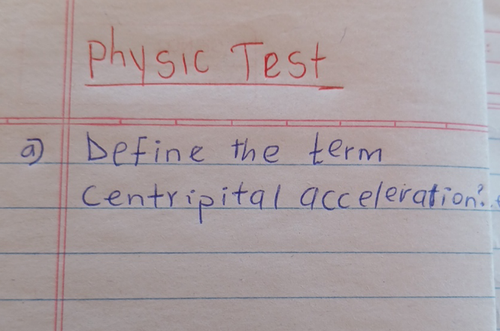 Physic Test
a) Define the term
Centripital acceleration?